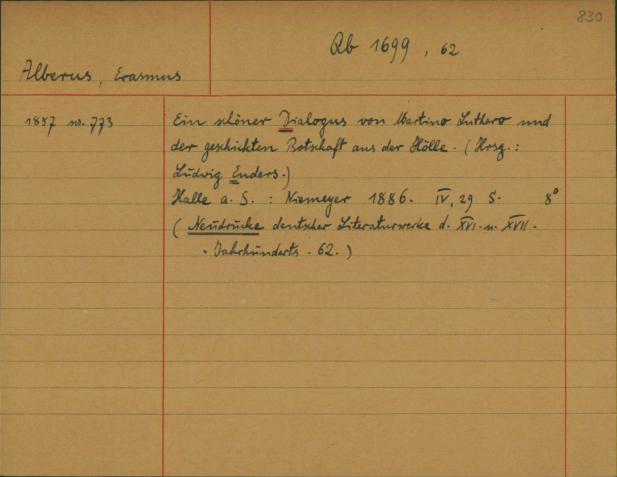 830
Qb 1699, 62
Alberus, Erasmus
1887 nr. 773
Ein schöner Dialogus von Martino Luthero und
der geschickten Botschaft aus der Hölle. (Hrsg.:
Ludwig Enders.)
Halle a. S. : Niemeyer 1886. IV, 29 S. 8°
(Neudrucke deutscher Literaturwerke d. XVI. u. XVII.
. Jahrhunderts . 62.)